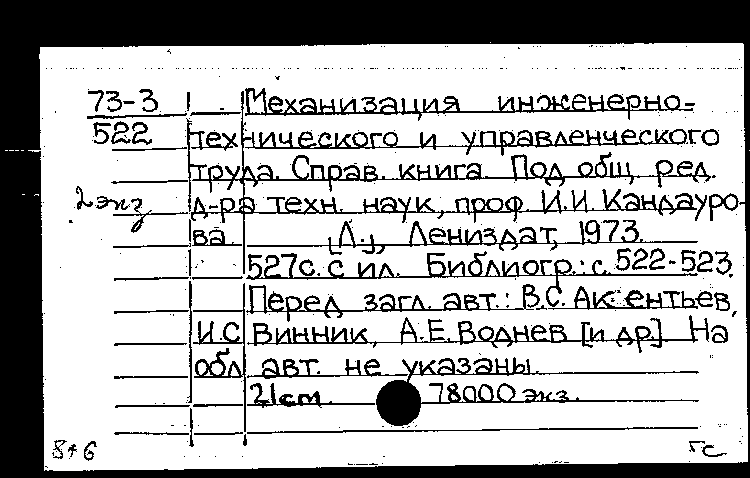 73-3 Механизация инженерно-
522 технического и управленческого
труда. Справ. книга. Под общ. ред.
2 экз д-ра техн. наук, проф. И.И. Кандауро-
ва. [Л.], Лениздат, 1973.
527с. с ил. Библиогр.: с. 522-523.
Перед загл. авт.: В.С. Аксентьев,
И.С Винник, А.Е. Воднев [и др.]. На
обл авт. не указаны.
21см. 78000 экз.
8+6 гс